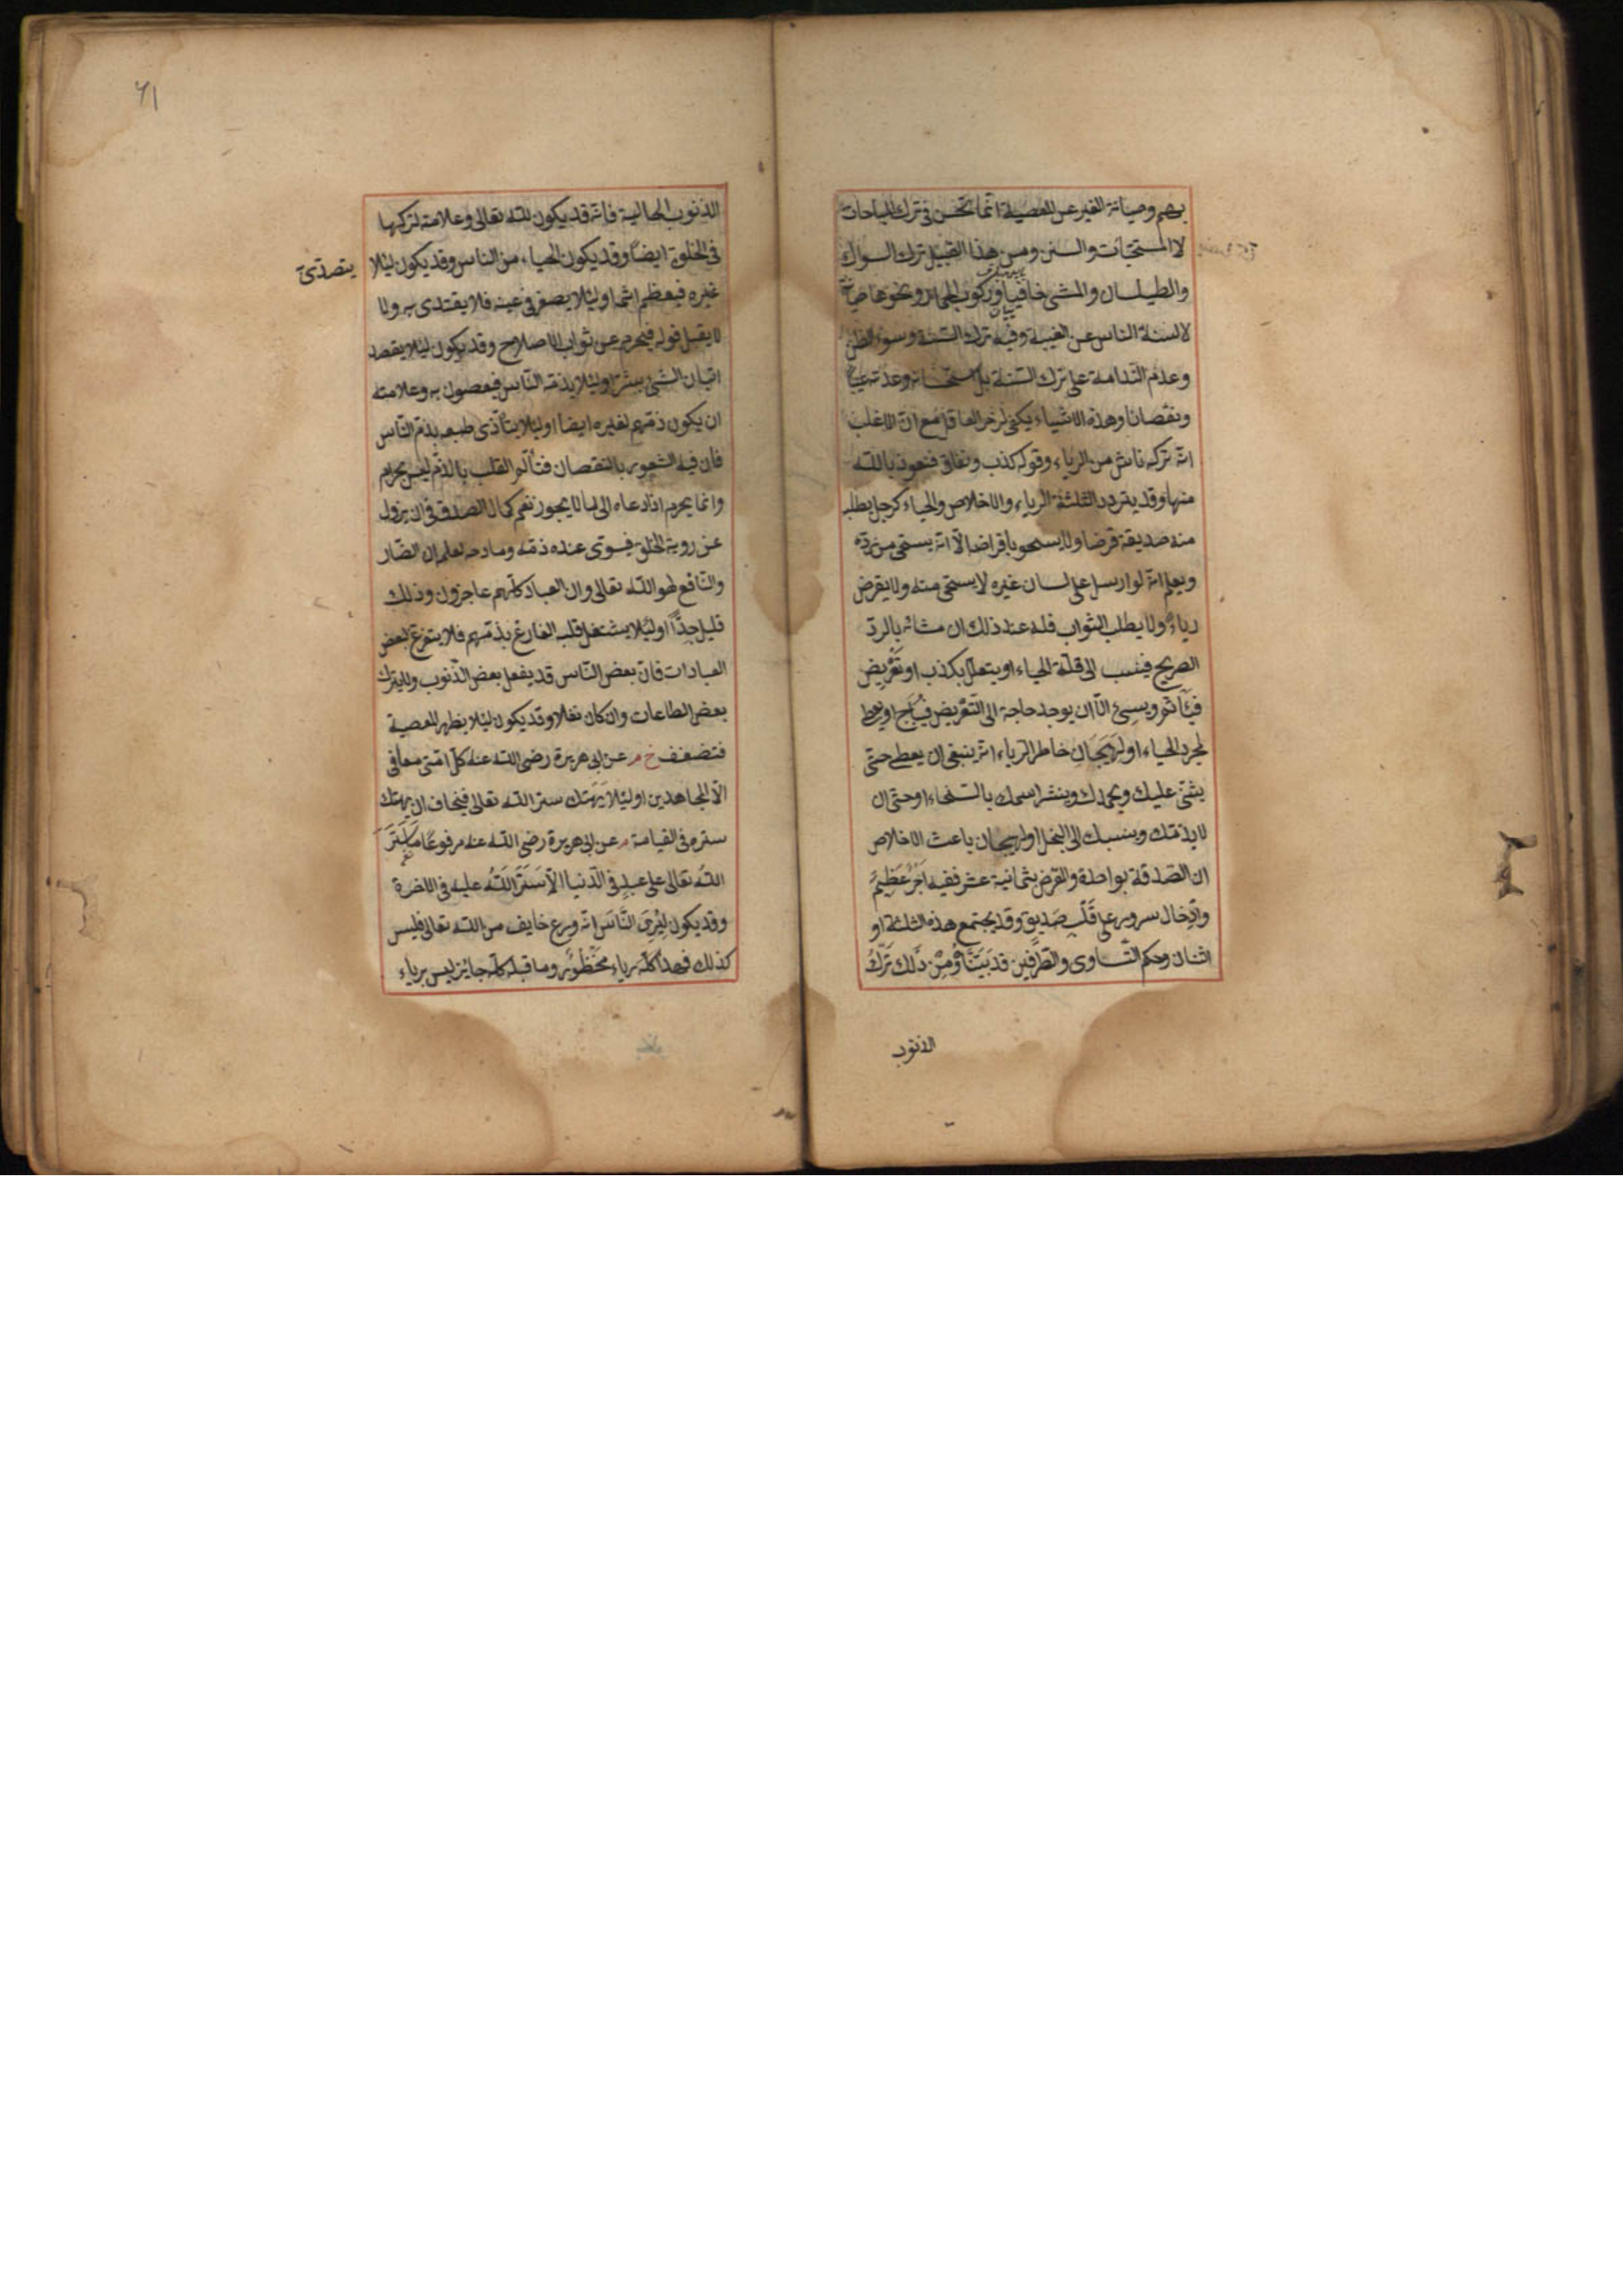 بهم وصيانة الغير عن المعصية انما تحسن فى ترك المباحات
لا المستحبات والسنن ومن هذا القبيل ترك السواك
والطيلسان والمشى حافيا وركوب الحمار ونحوها صيانة
لالسنة الناس عن الغيبة وفيه ترك السنة وسوء الظن
وعدم الندامة على ترك السنة بل استحسانه وعده عيبا
ونقصانا وهذه الاشياء يكفى لزجر العاقل مع ان الاغلب
انه تركه ناش من الرياء وقوله كذب ونفاق فنعوذ بالله
منها وقد يتردد الثلثة الرياء والاخلاص والحياء كرجل يطلب
منه صديقه قرضا ولا يسخو باقراضه الا انه يستحى من رده
ويعلم انه لو ارسل على لسان غيره لا يستحى منه ولا يقرض
رياء ولا يطلب الثواب فله عند ذلك ان مشانه بالرد
الصريح فينسب الى قلة الحياء او يتعلل بكذب او تعريض
فيأثم ويسئ الا ان يوجد حاجة الى التعريض فيباح او يعطى
لمجرد الحياء او لهيجان خاطر الرياء انه ينبغى ان يعطى حتى
يثنى عليك ويحمدك وينشر اسمك بالسخاء او حتى ان
لا يذمك وينسبك الى البخل او لهيجان باعث الاخلاص
ان الصدقة بواحدة والقرض بثمانية عشر ففيه اجر عظيم
وادخال سرور على قلب صديق وقد يجتمع هذه الثلثة او
اثنان وحكم التساوى والطرفين قد بينا ومن ذلك ترك
الذنوب
61
الذنوب الحالية فانه قد يكون لله تعالى وعلامته تركها
فى الخلوة ايضا وقد يكون للحياء من الناس وقد يكون ليئلا
يتصدى
غيره فيعظم اثمه او ليئلا يصغر فى عينه فلا يقتدى به ولا
لا يقبل قوله فيحرم عن ثواب الاصلاح وقد يكون ليئلا يقصد
اتيان الشئ بشر او ليئلا يذمه الناس فيعصون به وعلامته
ان يكون ذمهم لغيره ايضا او ليئلا يتأذى طبعه بذم الناس
فان فيه الشعور بالنقصان فتألم القلب بالذم ليس بحرام
وانما يحرم اذا دعاه الى ما لا يجوز نعم كمال الصدق فى ان يزول
عن روية الخلق فيستوى عنده ذمه ومادحه لعلم ان الضار
والنافع هو الله تعالى وان العباد كلهم عاجزون وذلك
قليل جدا او ليئلا يشتغل قلبه الفارغ بذمهم فلا يتفرغ لبعض
العبادات فان بعض الناس قد يفعل بعض الذنوب ولا يترك
بعض الطاعات وان كان نفلا وقد يكون ليئلا يظهر المعصية
فتضعف خ م عن ابى هريرة رضى الله عنه كل امتى معافى
الا المجاهدين او ليئلا يهتك ستر الله تعالى فيخاف ان يهتك
ستره فى القيامة م عن ابى هريرة رضى الله عنه مرفوعا ما ستر
الله تعالى على عبد فى الدنيا الا ستر الله عليه فى الاخرة
وقد يكون ليرى الناس انه ورع خايف من الله تعالى فليس
كذلك فهذا كله رياء محظور وما قبله كله جائز ليس برياء